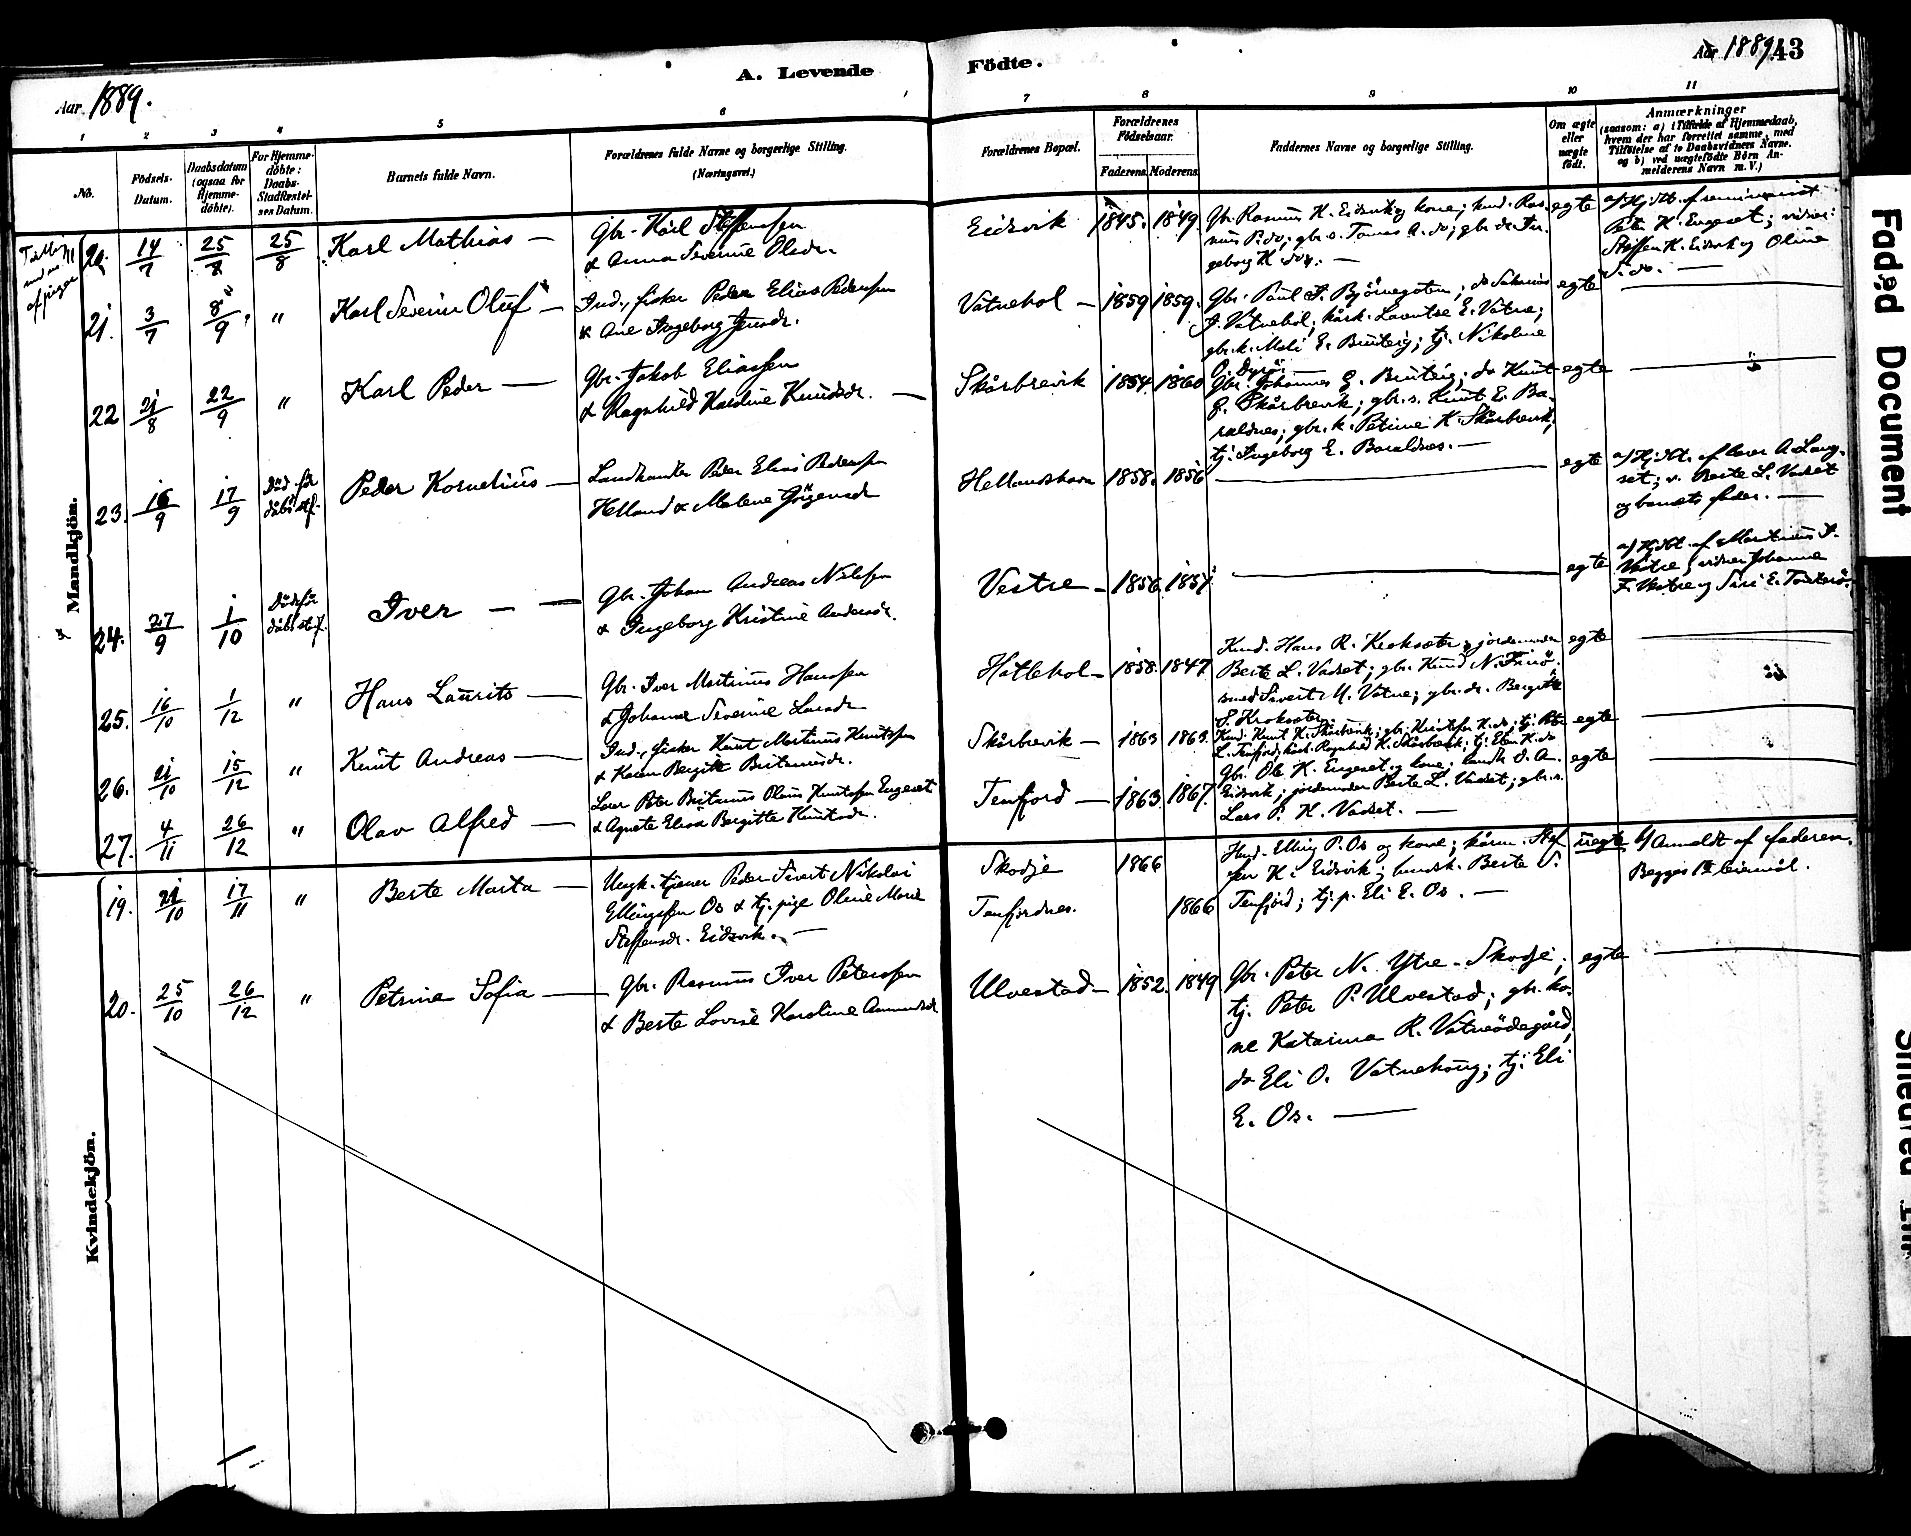 A. Levende Födte.
Aar. 1889.
Aar 1889. 43
1 2 3 4 5 6 7 8 9 10 11
No.
Födsels-Datum.
Daabsdatum (ogsaa for Hjemme-döbte).
For Hjemme-döbte: Daabs-Stadfæstel-ses Datum.
Barnets fulde Navn.
Forældrenes fulde Navne og borgerlige Stilling.
(Næringsvei.)
Forældrenes Bopæl.
Forældrenes Födselsaar.
Faderens. Moderens.
Faddernes Navne og borgerlige Stilling.
Om ægte eller uægte födt.
Anmærkninger
(saasom: a) i Tilfælde af Hjemmedaab, hvem der har forrettet samme, med Tilföielse af to Daabsvidners Navne. og b) ved uægtefödte Börn An-melderens Navn m. V.)
Mandkjön.
20. 14/7 25/8 25/8 Karl Mathias — Gbr. Karl Steffensen
& Anna Severine Olsdr. Eidsvik 1845. 1849. Gbr. Rasmus K. Eidsvik og kone; ind. Ras-
mus P. do; gbr. s. Tomas A. do; gbr. dr. In-
geborg K. do. — egte a) Hj. dbt. af seminarist
Peter K. Engeset; vidner:
Steffen K. Eidsvik og Oline
21. 3/7 8/9 " Karl Severin Oluf — Ind., fisker Peder Elias Pedersen
& Ane Ingeborg Jensdr. Vatnehol — 1859 1859. Gbr. Paul J. Björnegoten; do Sakarias
J. Vatnehol; kårk. Laventse E. Vatne;
gbr. k. Mali E. Brunteig; tj. Nikoline
O. Dyrö. — egte —
22 21/8 22/9 " Karl Peder — Gbr. Jakob Eliassen
& Ragnhild Karoline Knudsdr. — Skårbrevik 1854. 1860 Gbr. Johannes E. Brunteig; do Knut
E. Skårbrevik; gbr. s. Knut E. Ba-
raldnes; gbr. k. Petrine K. Skårbrevik;
tj. Ingeborg E. Baraldnes. — egte —
23. 16/9 17/9 Död för dåbs stf. Peder Kornelius — Landhandler Peder Elias Pedersen
Helland & Malene Jörgensdr Hellandshavn 1858. 1856 — egte a) Hj. dbt. af lærer A. Lang-
set; v. Berte L. Vadset
og barnets fader. —
24. 27/9 1/10 Död för dåbs stf. Iver — — Gbr. Johan Andreas Nilsen
& Ingeborg Kristine Andersdr. Vestre — 1856. 1857. — egte a) Hj. dbt. af Martinus I.
Vestre, vidner Johanne
F. Vestre og Siri E.
25. 16/10 1/12 " Hans Laurits — Gbr. Iver Martinus Hansen
& Johanne Severine Larsdr Hatlehol — 1858. 1847 Kaad. Hans R. Kroksæter; jordemoder
Berte L. Vadset; gbr. Knud N.
smed Sivert M. Vatne; gbr. dr. Bergitte
S. Kroksæter. egte —
26. 21/10 15/12 " Knut Andreas — Ind., fisker Knut Martinus Knutsen
& Karen Bergitte Britanusdr. Skårbrevik — 1863 1863. Kaad. Knut K. Skårbrevik; gbr. Kristofer K. do; tj. Peter
L. Tenfjord; kårk. Ragnhild K. Skårbrevik; tj. Elen K. do egte —
27. 4/11 26/12 " Olav Alfred — Lærer Peter Britanus Olaus Knutsen Engeset
& Agnete Elisa Bergitte Knutsdr. Tenfjord — 1863. 1867. Gbr. Ole K. Engeset og kone; landh. O. A.
Eidsvik; jordemoder Berte L. Vadset; gbr. s.
Lars P. K. Vadset. — egte —
Kvindekjön.
19. 21/10 17/11 " Berte Marta — Ungk. tjener Peder Sivert Nikolai
Ellingsen Os & tj. pige Oline Marie
Steffensdr. Eidsvik. — Skodje 1866
Tenfjordnes. 1866 Elling P. Os og kone; kårm. Stef-
fen K. Eidsvik; Berte S.
Tenfjord; tj. p. Eli E. Os. — uegte b) Anmeldt af faderen.
Begges 1ste leiermål.
20. 25/10 26/12 " Petrine Sofia — Gbr. Rasmus Iver Petersen
& Berte Lovise Karoline Ammundsdr Ulvestad — 1852. 1849 Gbr. Peter N. Ytre-Skodje;
tj. Peter P. Ulvestad; gbr. ko-
ne Katarina R. Vatneödegård;
do Eli O. Vatnehaug; tj. Eli
E. Os. — egte —
Faded Document